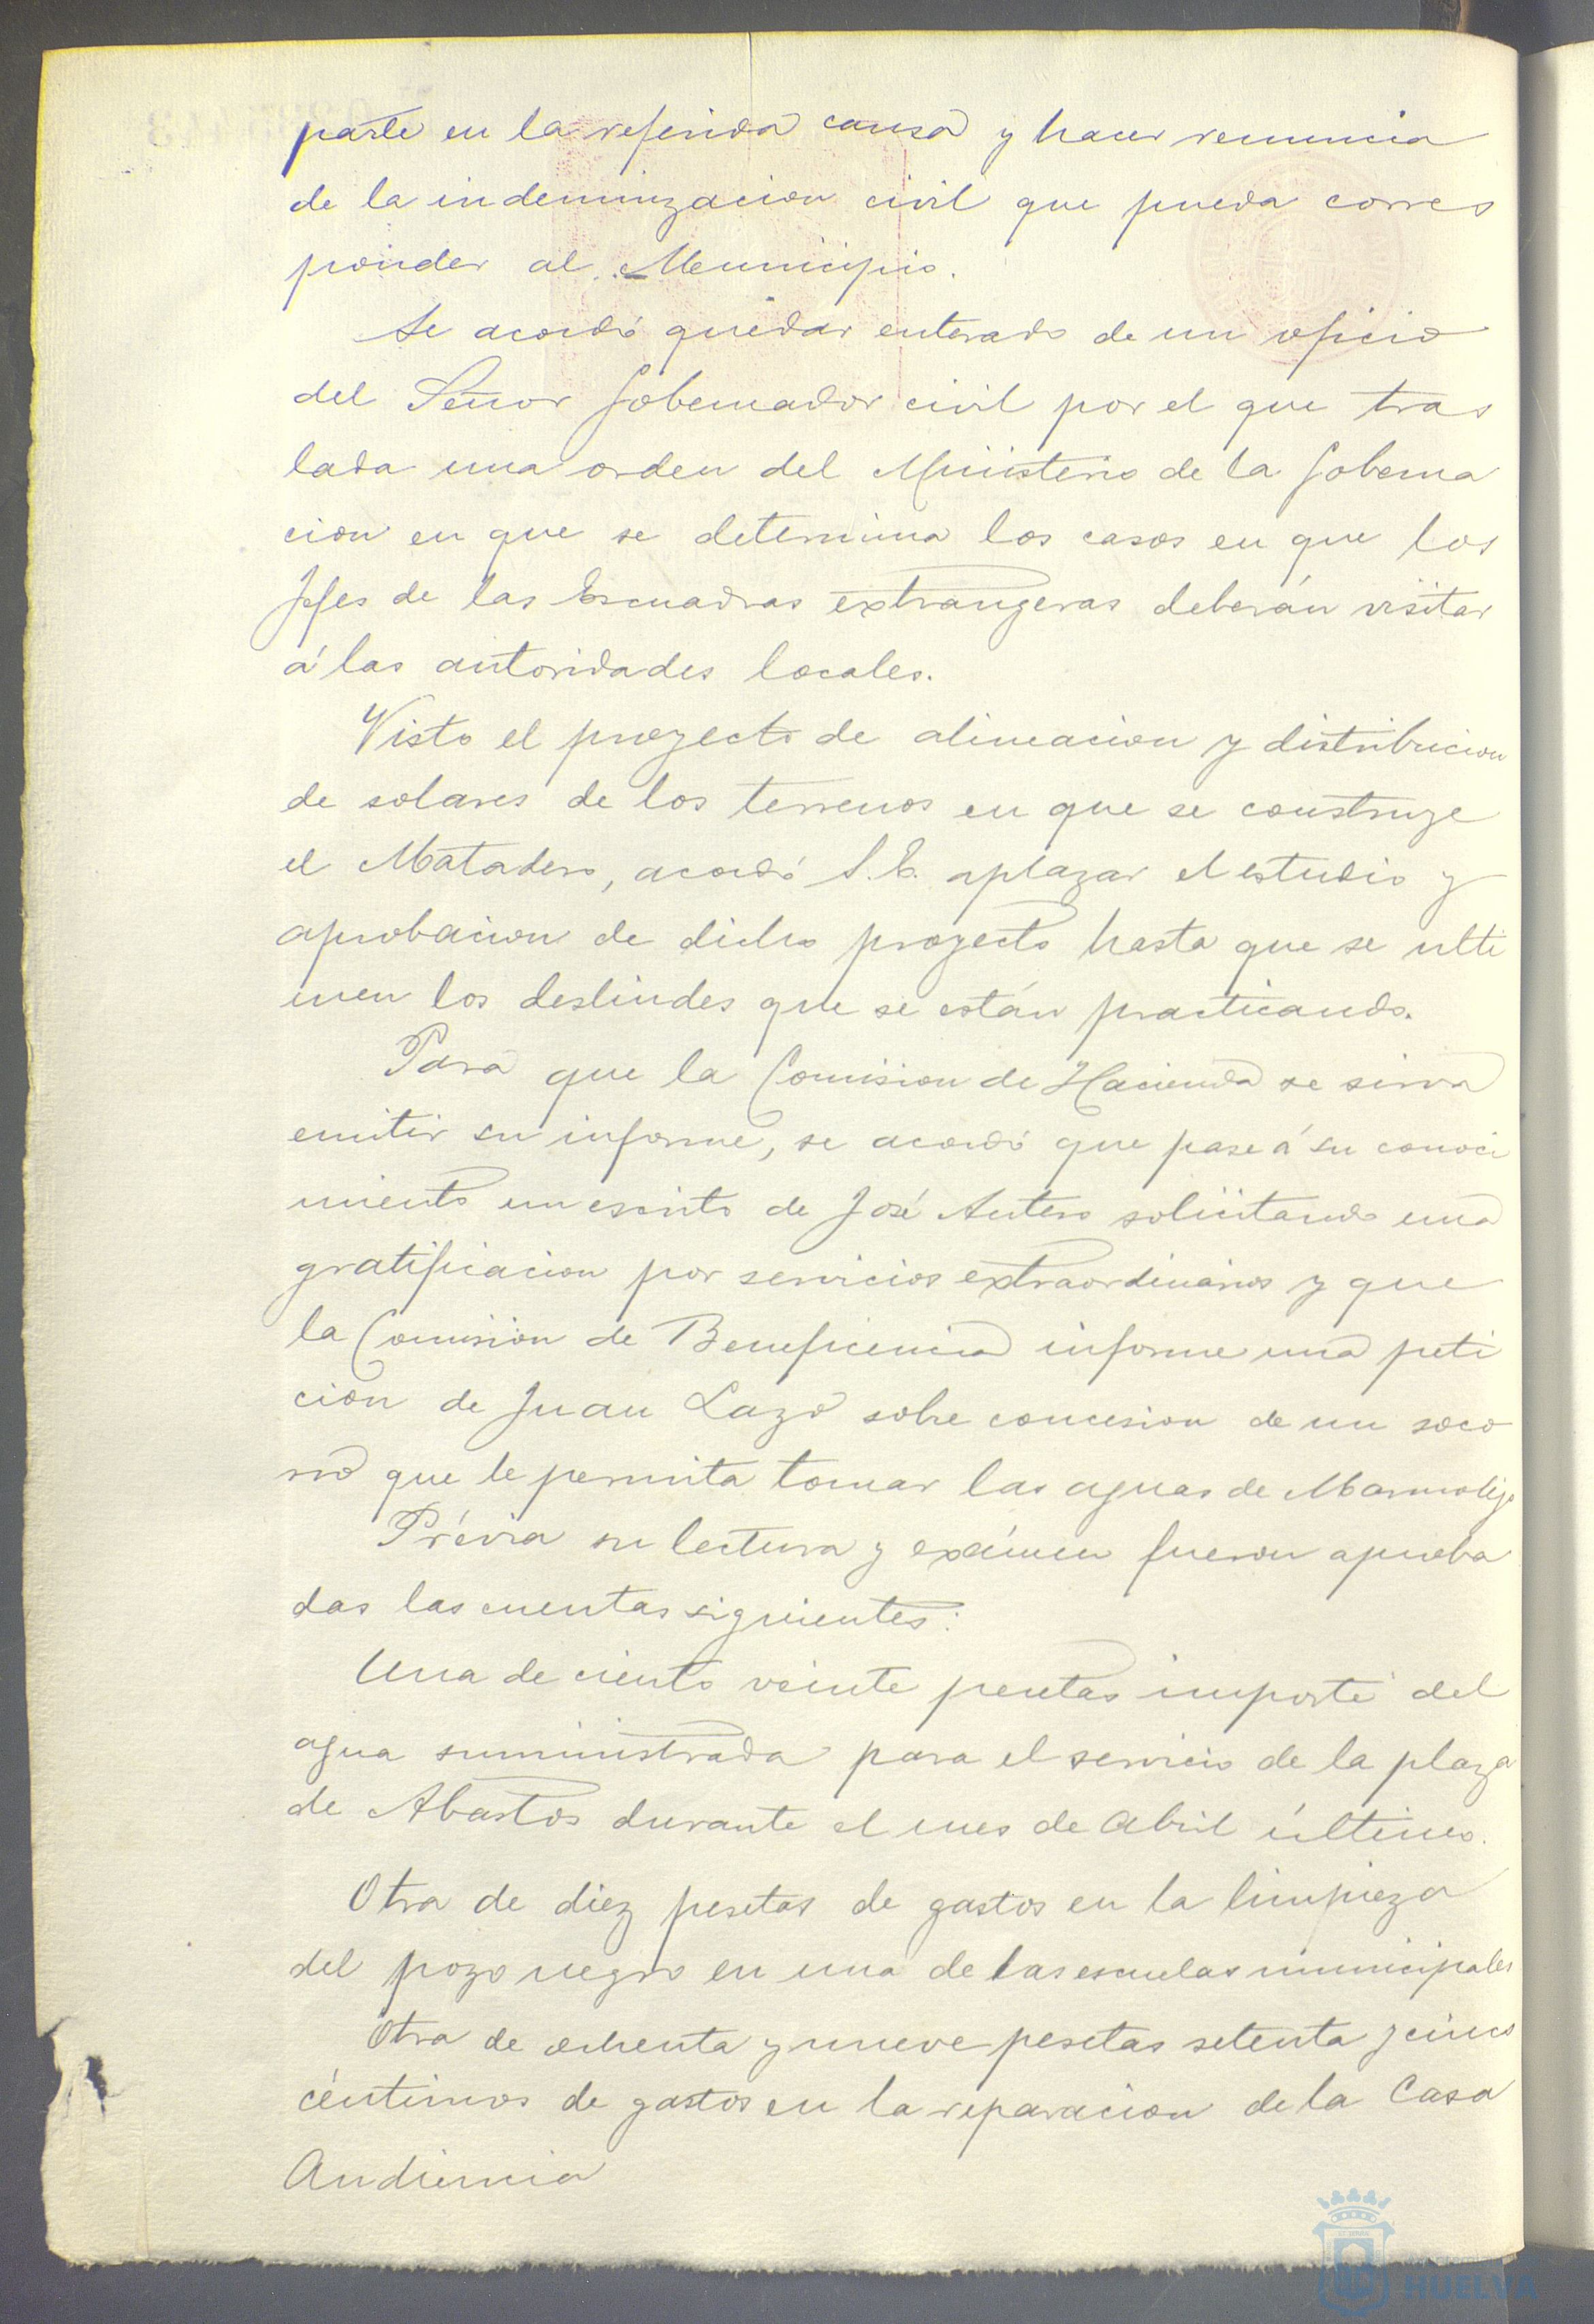 parte en la referida causa y hacer renuncia
de la indemnizacion civil que pueda corres
ponder al Municipio.
Se acordó quedar enterado de un oficio
del Señor Gobernador civil por el que tras
lada una orden del Ministerio de la Goberna
cion en que se determina los casos en que los
Jefes de las Escuadras extrangeras deberán visitar
á las autoridades locales.
Visto el proyecto de alineacion y distribucion
de solares de los terrenos en que se construye
el Matadero, acordó S.E. aplazar el estudio y
aprobacion de dicho proyecto hasta que se ulti
men los deslindes que se están practicando.
Para que la Comision de Hacienda se sirva
emitir su informe, se acordó que pase á su conoci
miento un escrito de José Antero solicitando una
gratificacion por servicios extraordinarios y que
la Comision de Beneficencia informe una peti
cion de Juan Lazo sobre concesion de un soco
rro que le permita tomar las aguas de Marmolejo
Prévia su lectura y exámen fueron aproba
das las cuentas siguientes:
Una de ciento veinte pesetas importe del
agua suministrada para el servicio de la plaza
de Abastos durante el mes de Abril último.
Otra de diez pesetas de gastos en la limpieza
del pozo negro en una de las escuelas municipales
Otra de ochenta y nueve pesetas setenta y cinco
céntimos de gastos en la reparacion de la Casa
Audiencia
HUELVA